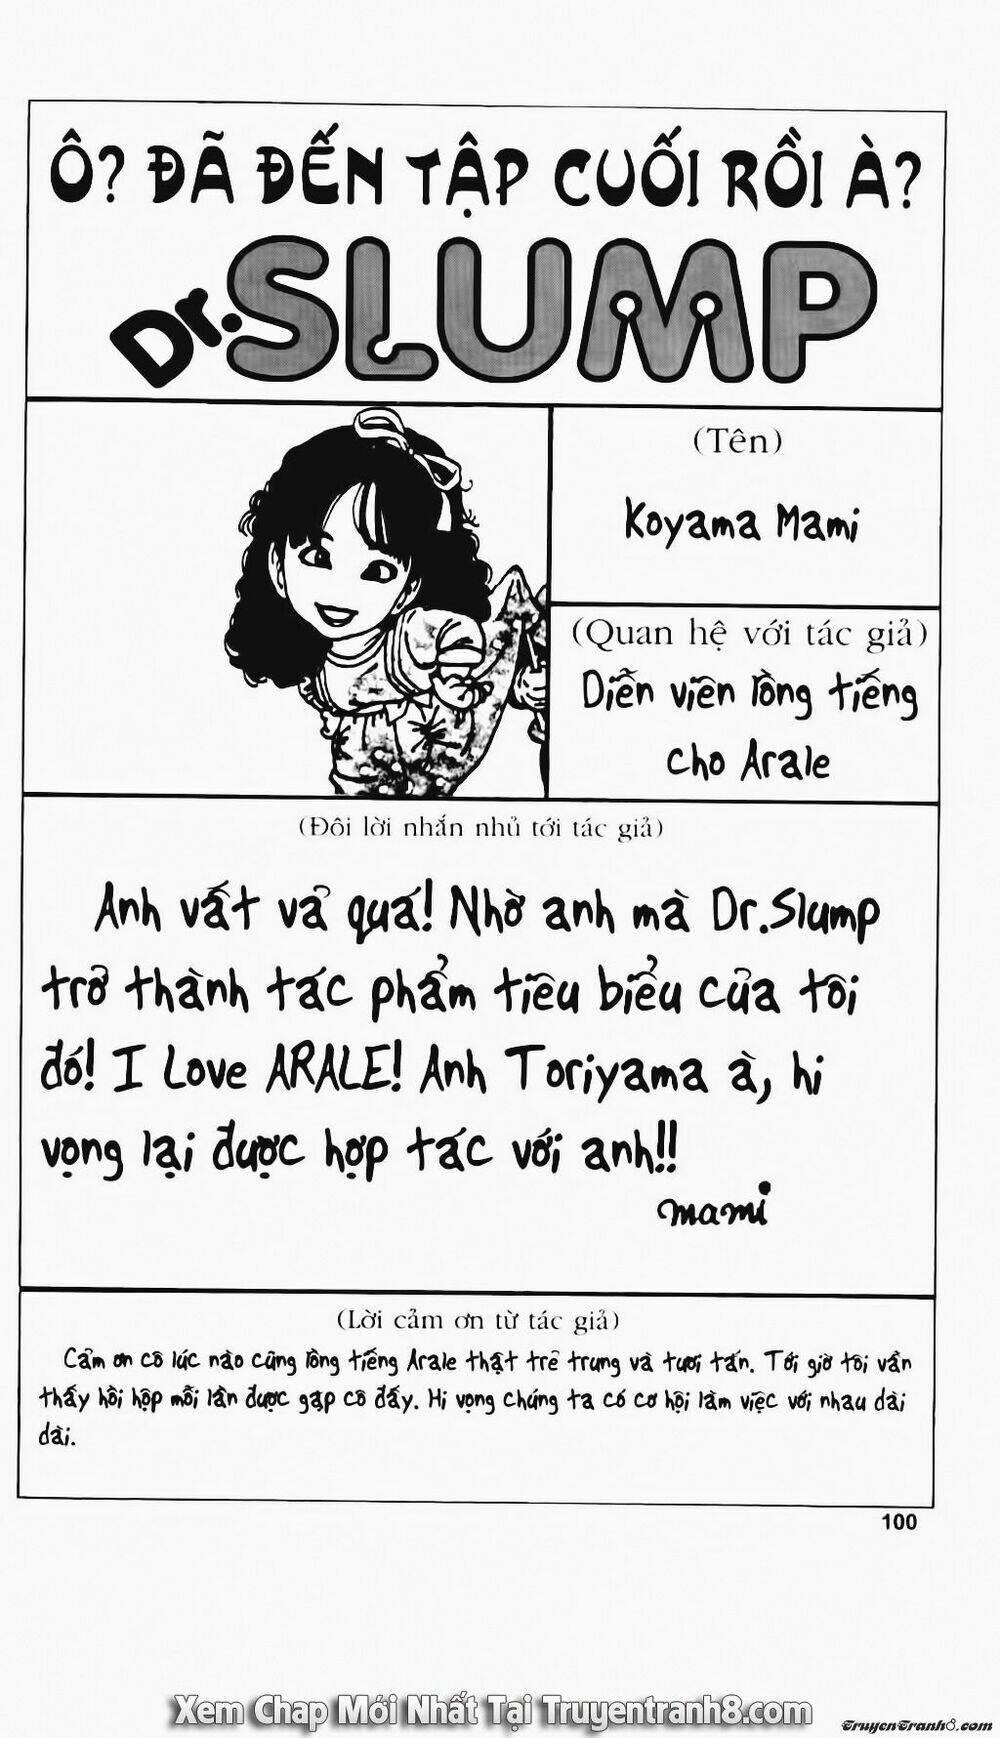 Ô? ĐÃ ĐẾN TẬP CUỐI RỒI À?
Dr. SLUMP
(Tên)
Koyama Mami
(Quan hệ với tác giả)
Diễn viên lồng tiếng
cho Arale
(Đôi lời nhắn nhủ tới tác giả)
Anh vất vả quá! Nhờ anh mà Dr.Slump
trở thành tác phẩm tiêu biểu của tôi
đó! I Love ARALE! Anh Toriyama à, hi
vọng lại được hợp tác với anh!!
mami
(Lời cảm ơn từ tác giả)
Cảm ơn cô lúc nào cũng lồng tiếng Arale thật trẻ trung và tươi tắn. Tới giờ tôi vẫn
thấy hồi hộp mỗi lần được gặp cô đấy. Hi vọng chúng ta có cơ hội làm việc với nhau dài
dài.
100
Xem Chap Mới Nhất Tại Truyentranh8.com
TruyenTranh8.com